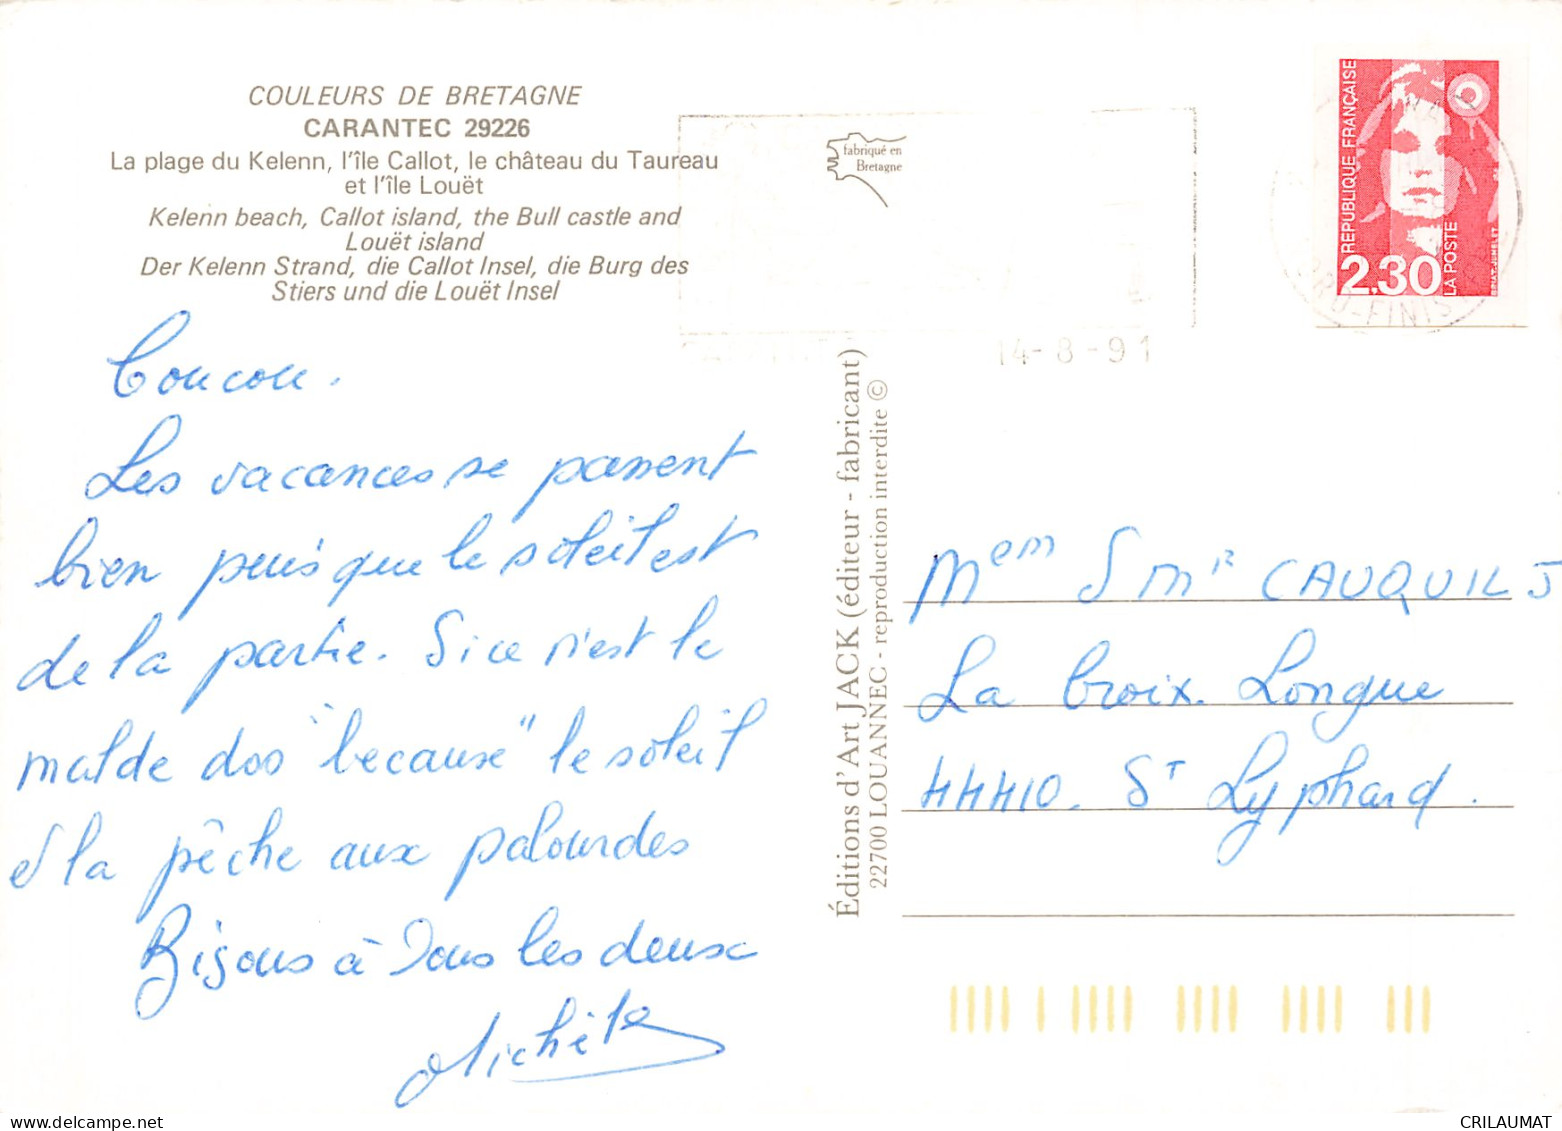 COULEURS DE BRETAGNE
CARANTEC 29226
La plage du Kelenn, l'île Callot, le château du Taureau
et l'île Louët
Kelenn beach, Callot island, the Bull castle and
Louët island
Der Kelenn Strand, die Callot Insel, die Burg des
Stiers und die Louët Insel
Coucou.
Les vacances se passent
bien puisque le soleil est
de la partie. Si ce n'est le
mal de dos "because" le soleil
et la pêche aux palourdes
Bisous à Tous les deux
Michèle
fabriqué en
Bretagne
14-8-91
Éditions d'Art JACK (éditeur - fabricant)
22700 LOUANNEC - reproduction interdite ©
RÉPUBLIQUE FRANÇAISE
2,30
LA POSTE
Mem et Mr CAUQUIL J
La Croix Longue
44410. St Lyphard.
CRILAUMAT